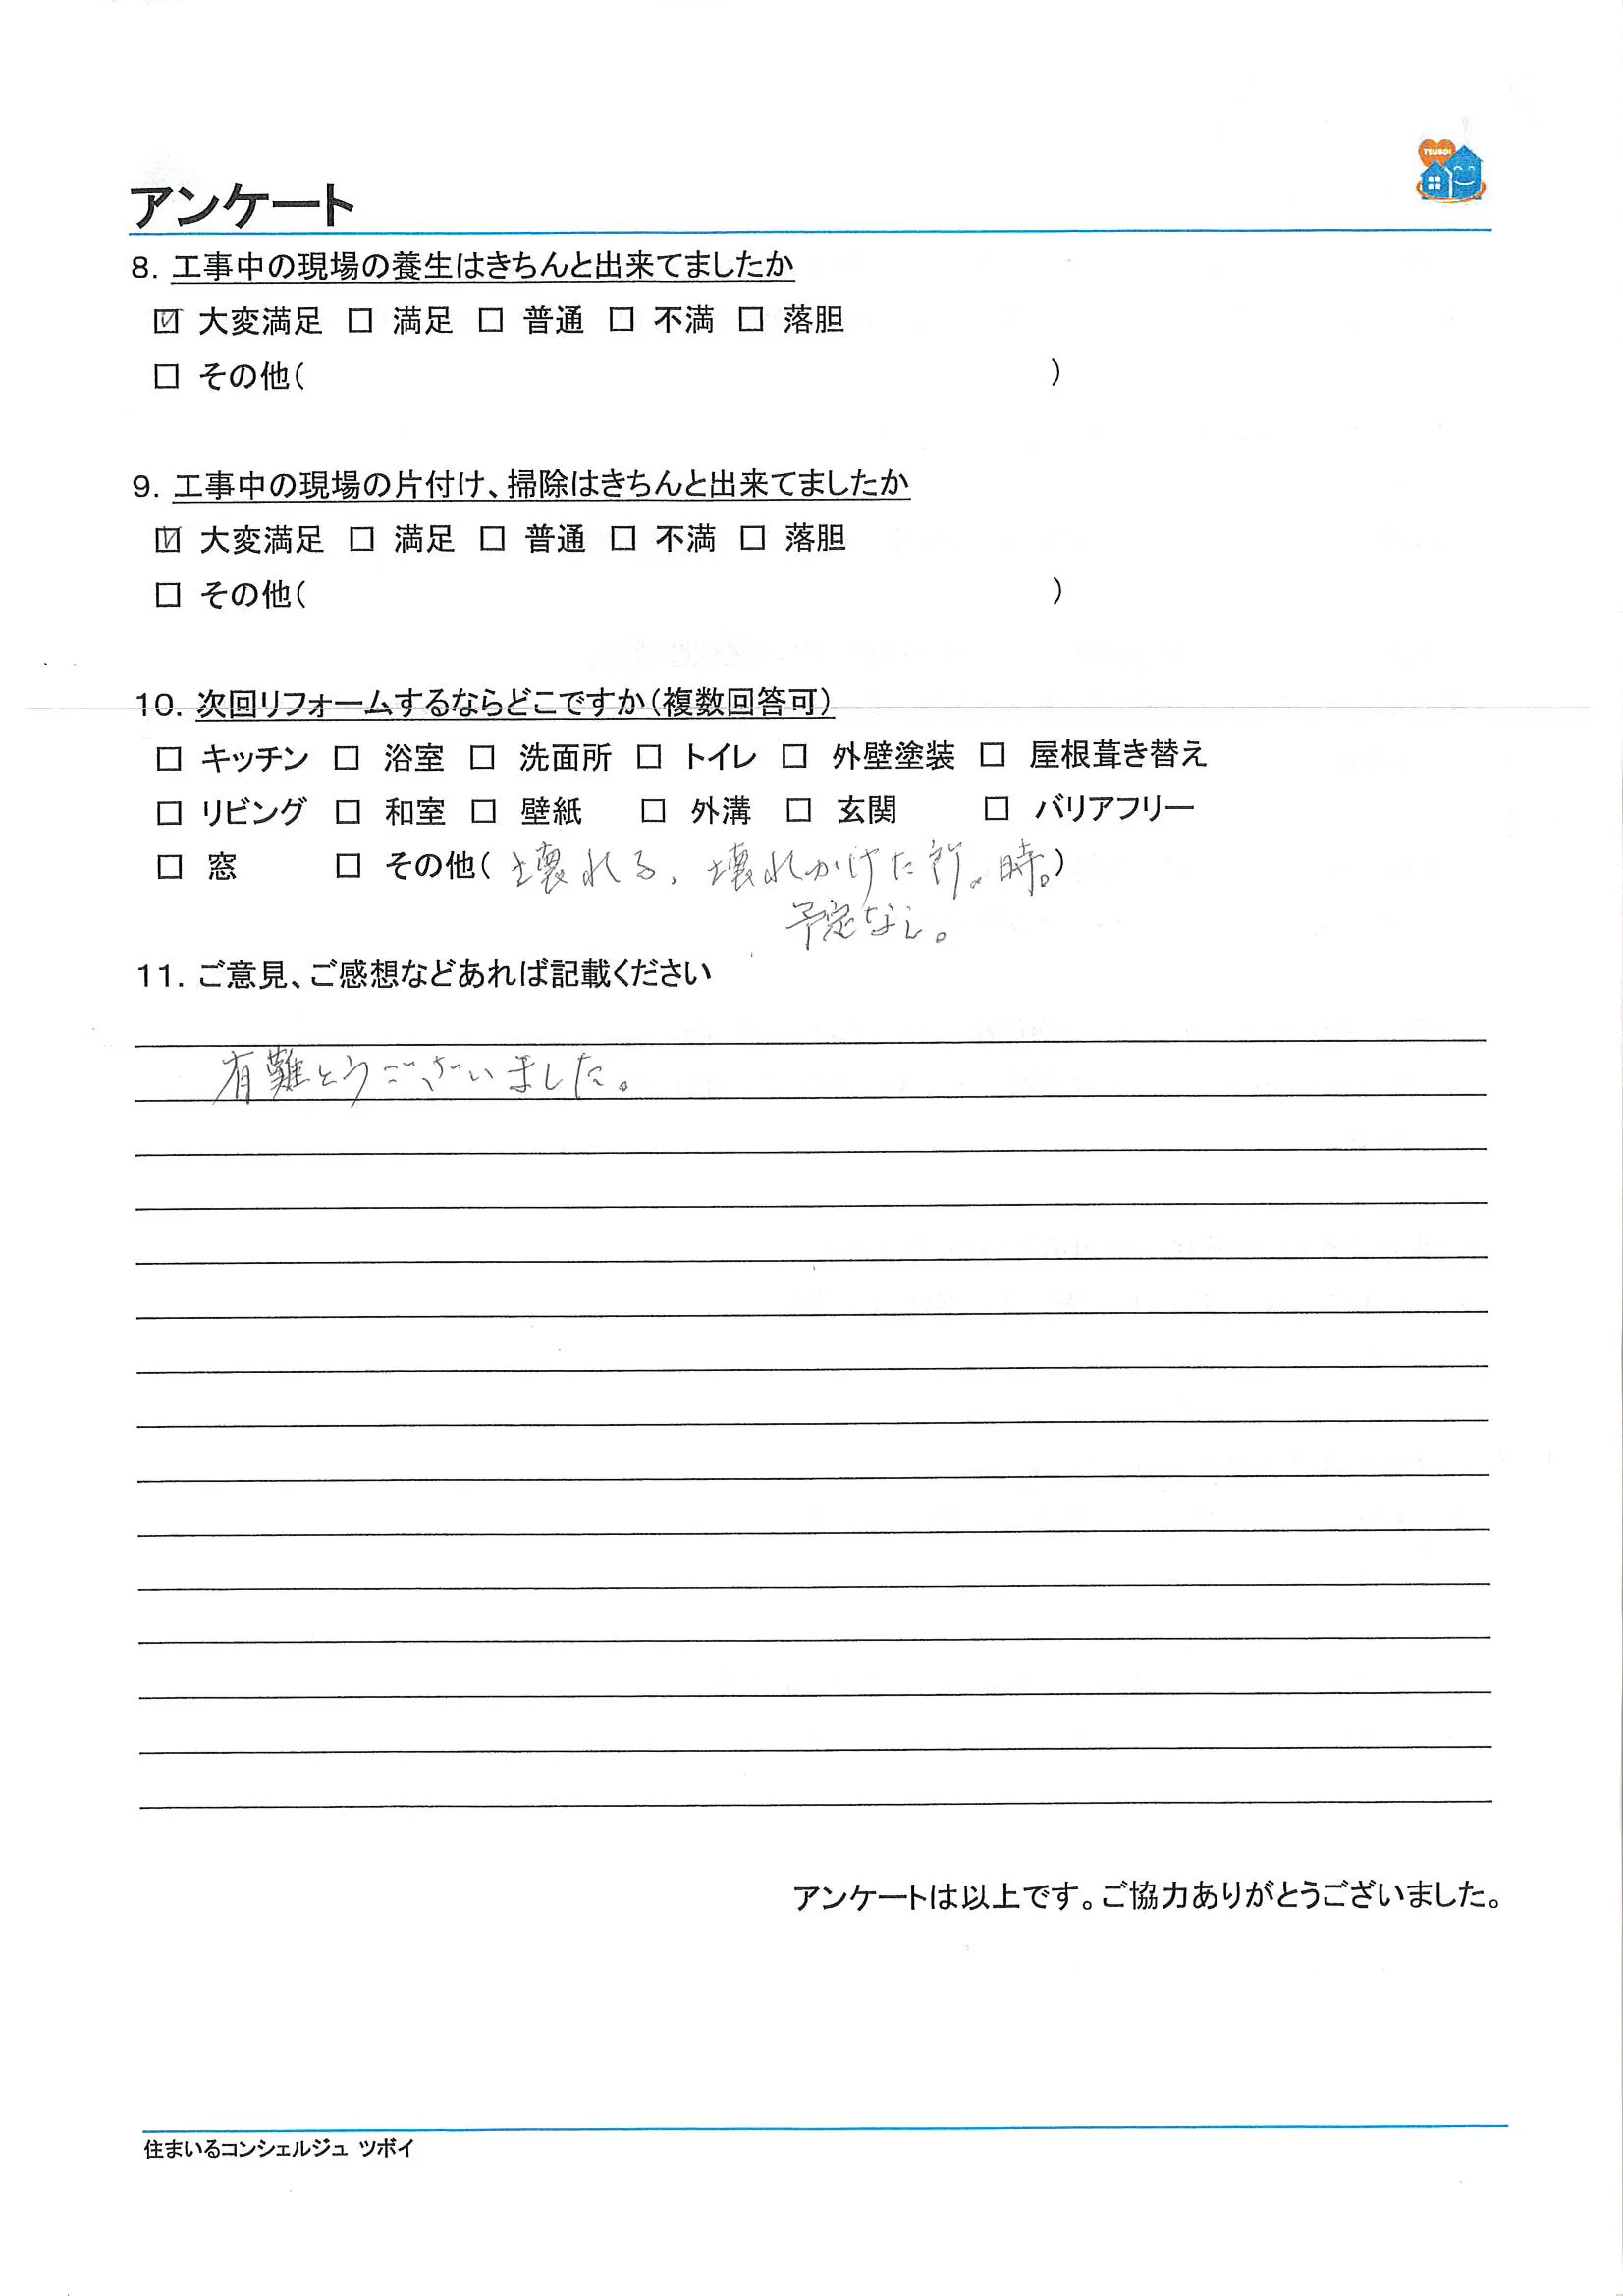 TSUBOI
アンケート
8. 工事中の現場の養生はきちんと出来てましたか
☑ 大変満足 □ 満足 □ 普通 □ 不満 □ 落胆
□ その他( )
9. 工事中の現場の片付け、掃除はきちんと出来てましたか
☑ 大変満足 □ 満足 □ 普通 □ 不満 □ 落胆
□ その他( )
10. 次回リフォームするならどこですか(複数回答可)
□ キッチン □ 浴室 □ 洗面所 □ トイレ □ 外壁塗装 □ 屋根葺き替え
□ リビング □ 和室 □ 壁紙 □ 外溝 □ 玄関 □ バリアフリー
□ 窓 □ その他( 壊れる、壊れかけた 時。)
予定なし。
11. ご意見、ご感想などあれば記載ください
有難とうございました。
アンケートは以上です。ご協力ありがとうございました。
住まいるコンシェルジュ ツボイ